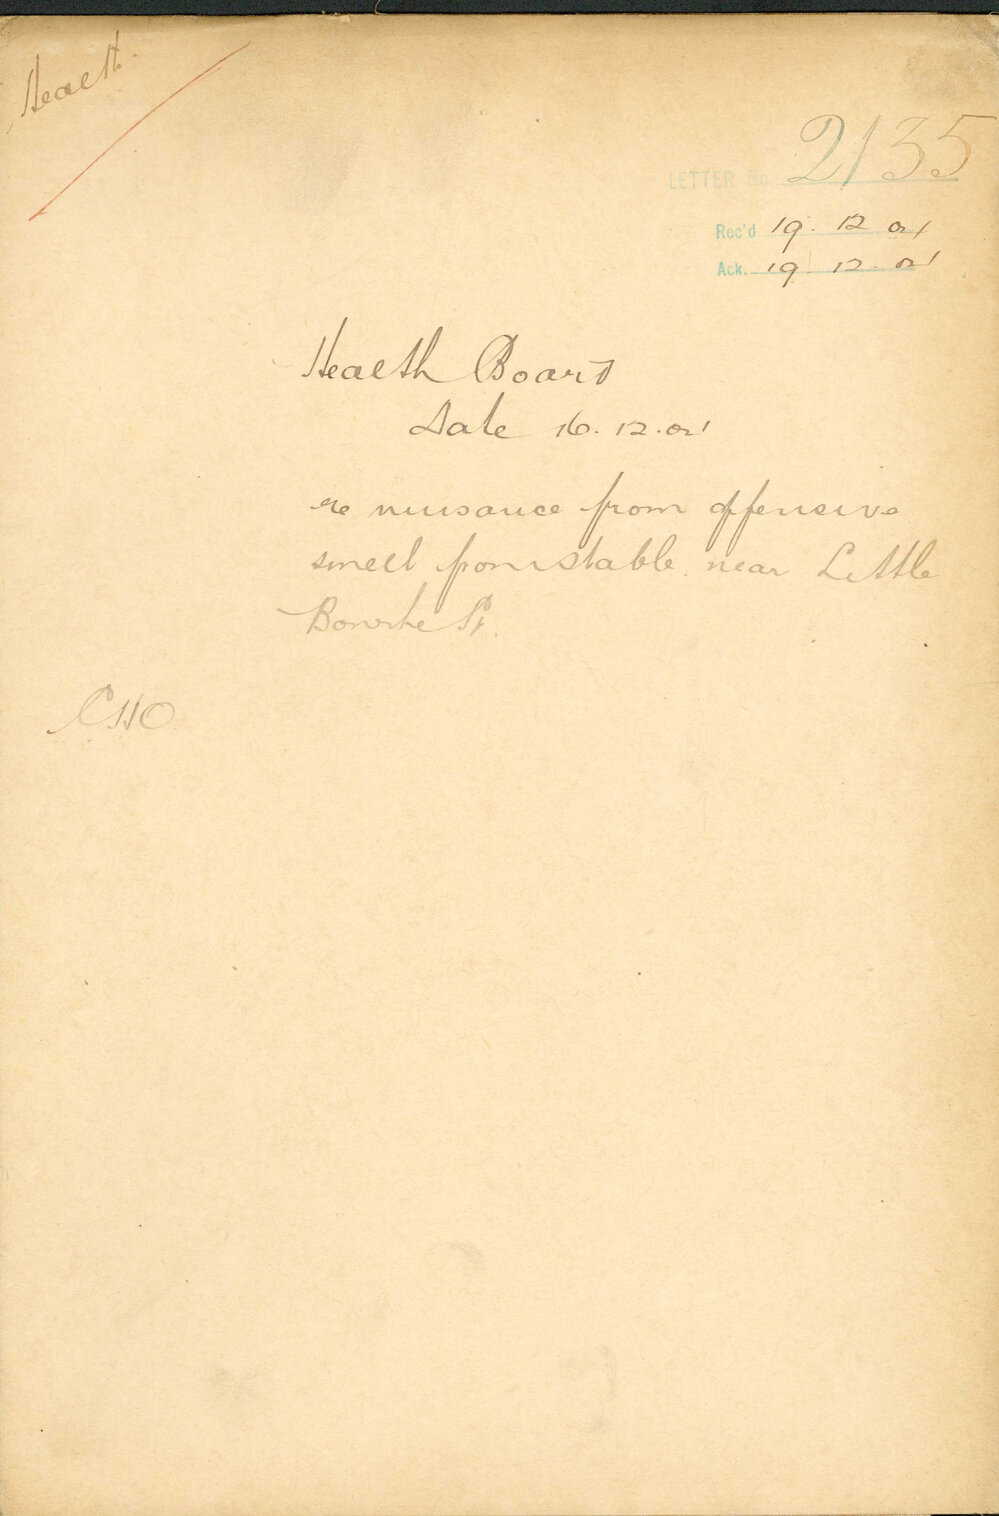 Health.
LETTER No. 2135
Rec'd 19. 12 01
Ack. 19 12. 01
Health Board
Date 16. 12. 01
re nuisance from offensive
smell from stable near Little
Bourke St.
CHO